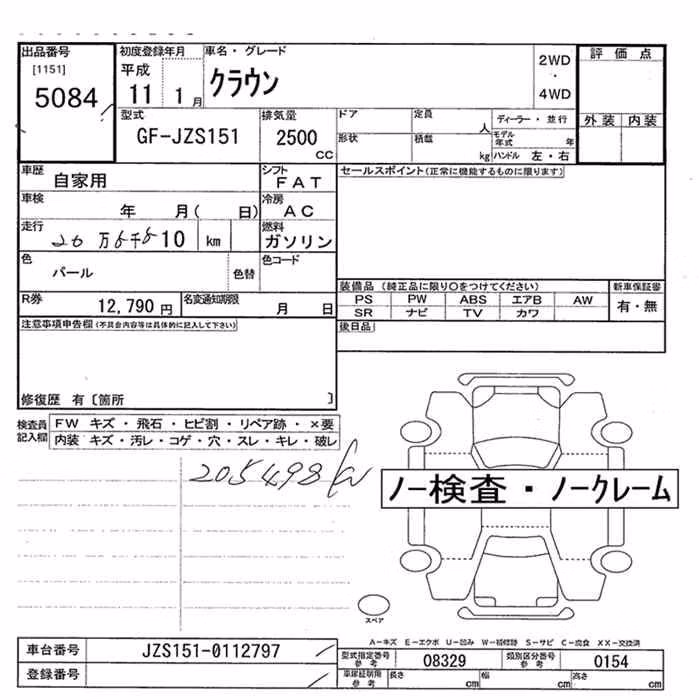 出品番号 初度登録年月 車名・グレード 2WD 評価点
[1151] 平成 クラウン ・
5084 11 1月 4WD
型式 排気量 ドア 定員 人 ディーラー・並行 外装 内装
GF-JZS151 2500 CC 形状 積載 kg モデル年式 年
ハンドル 左・右
車歴 自家用 シフト FAT セールスポイント(正常に機能するものに限ります)
車検 年 月( 日) 冷房 AC
走行 万 千 10 km 燃料 ガソリン
色 パール 色替 色コード
装備品(純正品に限り○をつけてください) 新車保証書
R券 12,790円 名変通知期限 月 日 PS PW ABS エアB AW 有・無
SR ナビ TV カワ
注意事項申告欄(不具合内容等は具体的に記入して下さい) 後日品
修復歴 有〔箇所 〕
検査員記入欄 FW キズ・飛石・ヒビ割・リペア跡・×要
内装 キズ・汚レ・コゲ・穴・スレ・キレ・破レ
205498
ノー検査・ノークレーム
スペア
A-キズ E-エクボ U-凹み W-補修跡 S-サビ C-腐食 XX-交換済
車台番号 JZS151-0112797 型式指定番号参考 08329 類別区分番号参考 0154
登録番号 車庫証明用参考 長さ cm 幅 cm 高さ cm